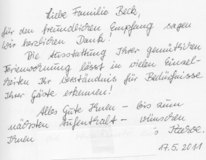 Liebe Familie Beck,
für den freundlichen Empfang sagen
wir herzlichen Dank!
Die Ausstattung Ihrer gemütlichen
Ferienwohnung lässt in vielen Einzel-
heiten Ihr Verständnis für Bedürfnisse
Ihrer Gäste erkennen!
Alles Gute Ihnen - bis zum
nächsten Aufenthalt - wünschen
Ihnen
17.5.2011